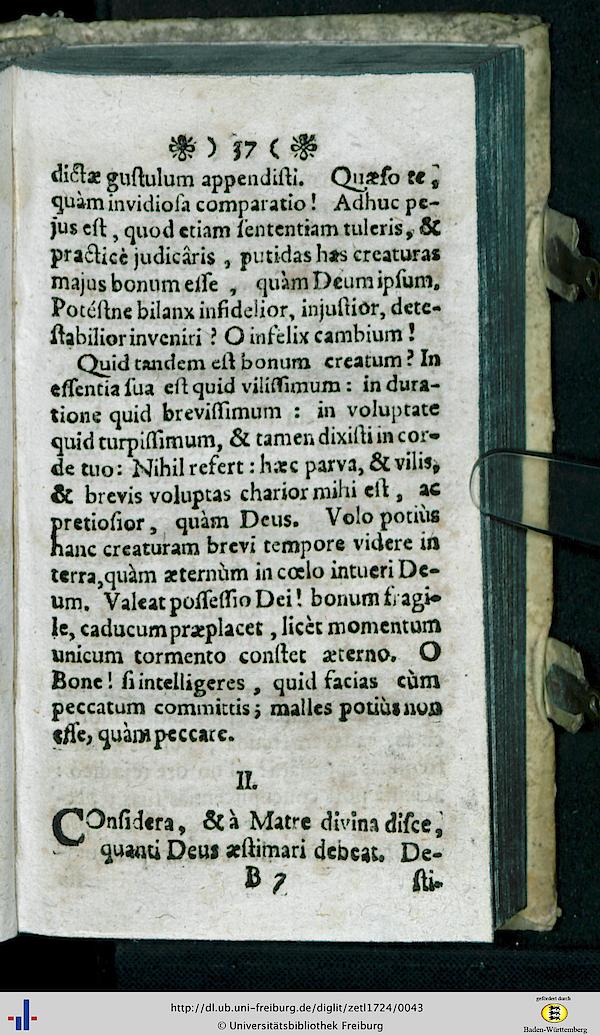 ) 37 (
dictæ guſtulum appendiſti. Quæſo te,
quàm invidioſa comparatio! Adhuc pe-
jus eſt, quod etiam ſententiam tuleris, &
practicè judicâris, putidas has creaturas
majus bonum eſſe, quàm Deum ipſum.
Potéſtne bilanx infidelior, injuſtior, dete-
ſtabilior inveniri? O infelix cambium!
Quid tandem eſt bonum creatum? In
eſſentia ſua eſt quid viliſſimum: in dura-
tione quid breviſſimum: in voluptate
quid turpiſſimum, & tamen dixiſti in cor-
de tuo: Nihil refert: hæc parva, & vilis,
& brevis voluptas charior mihi eſt, ac
pretioſior, quàm Deus. Volo potiùs
hanc creaturam brevi tempore videre in
terra, quàm æternùm in cœlo intueri De-
um. Valeat poſſeſſio Dei! bonum fragi-
le, caducum præplacet, licèt momentum
unicum tormento conſtet æterno. O
Bone! ſi intelligeres, quid facias cùm
peccatum committis; malles potiùs non
eſſe, quàm peccare.
II.
COnſidera, & à Matre divina diſce,
quanti Deus æſtimari debeat. De-
B 7 ſti-
http://dl.ub.uni-freiburg.de/diglit/zetl1724/0043
© Universitätsbibliothek Freiburg
gefördert durch
Baden-Württemberg